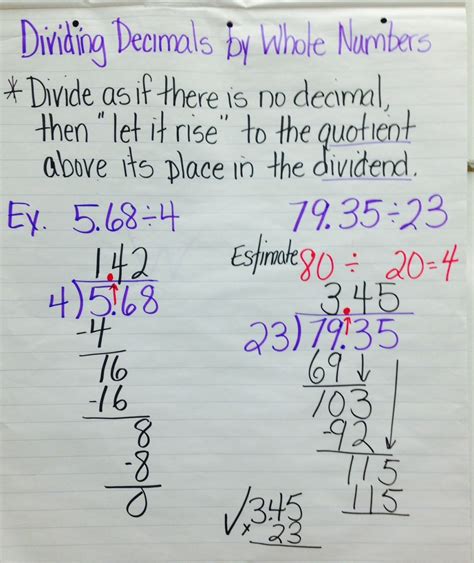 Dividing Decimals by Whole Numbers
* Divide as if there is no decimal,
then "let it rise" to the quotient
above its place in the dividend.
Ex. 5.68÷4
1.42
4)5.68
-4
16
-16
8
-8
0
79.35÷23
Estimate 80 ÷ 20=4
3.45
23)79.35
69
103
-92
115
115
√3.45
× 23